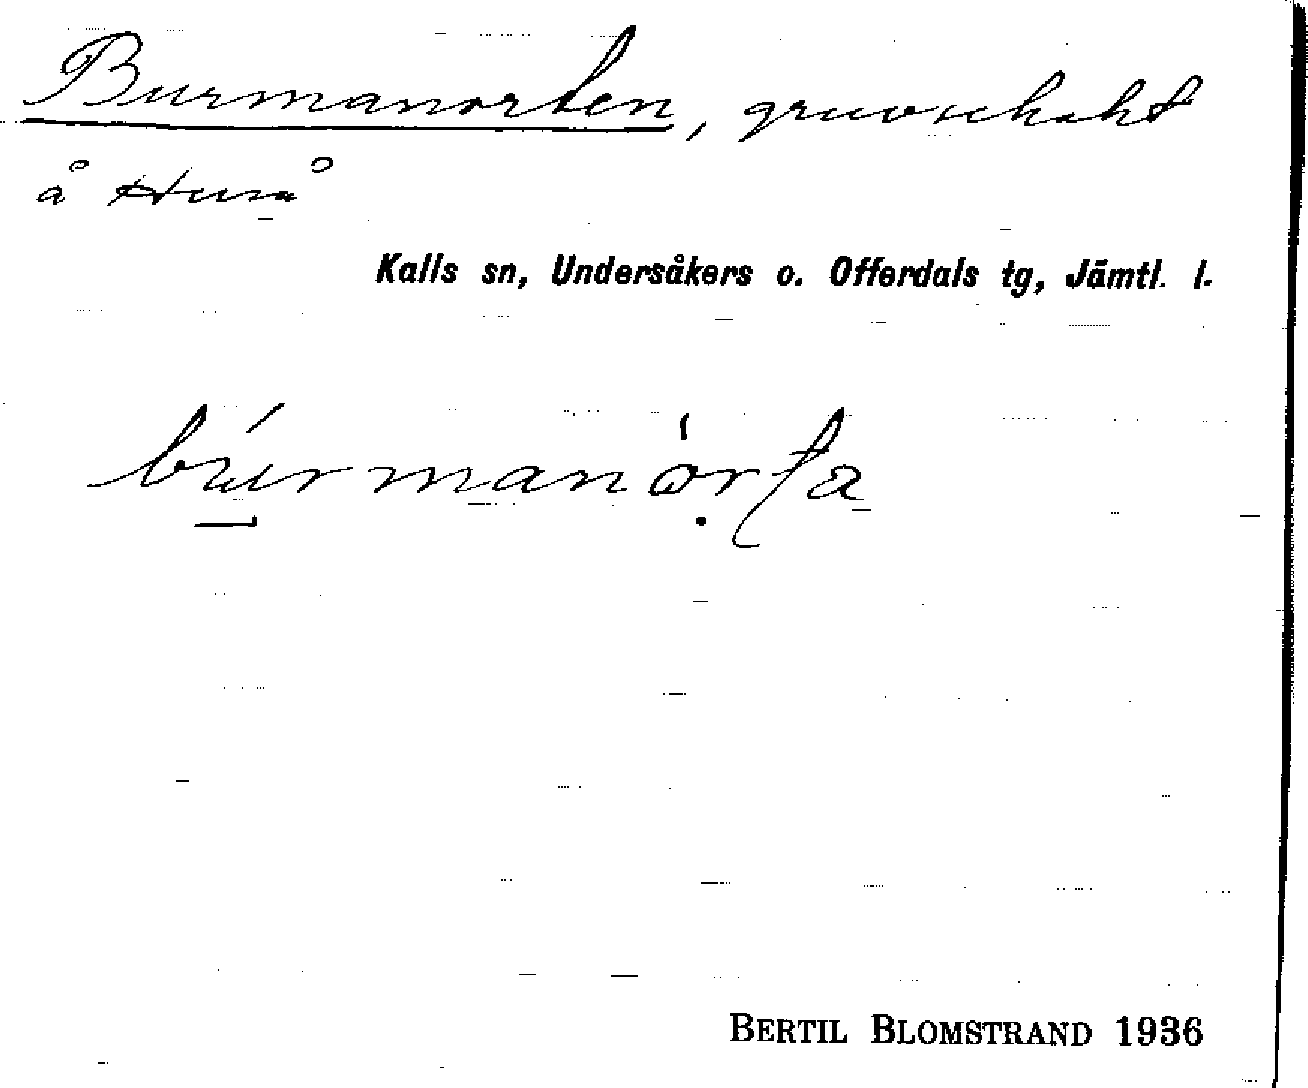 Burmanorten, gruvschakt
å Huså
Kalls sn, Undersåkers o. Offerdals tg, Jämtl. l.
búrmanòrta
BERTIL BLOMSTRAND 1936